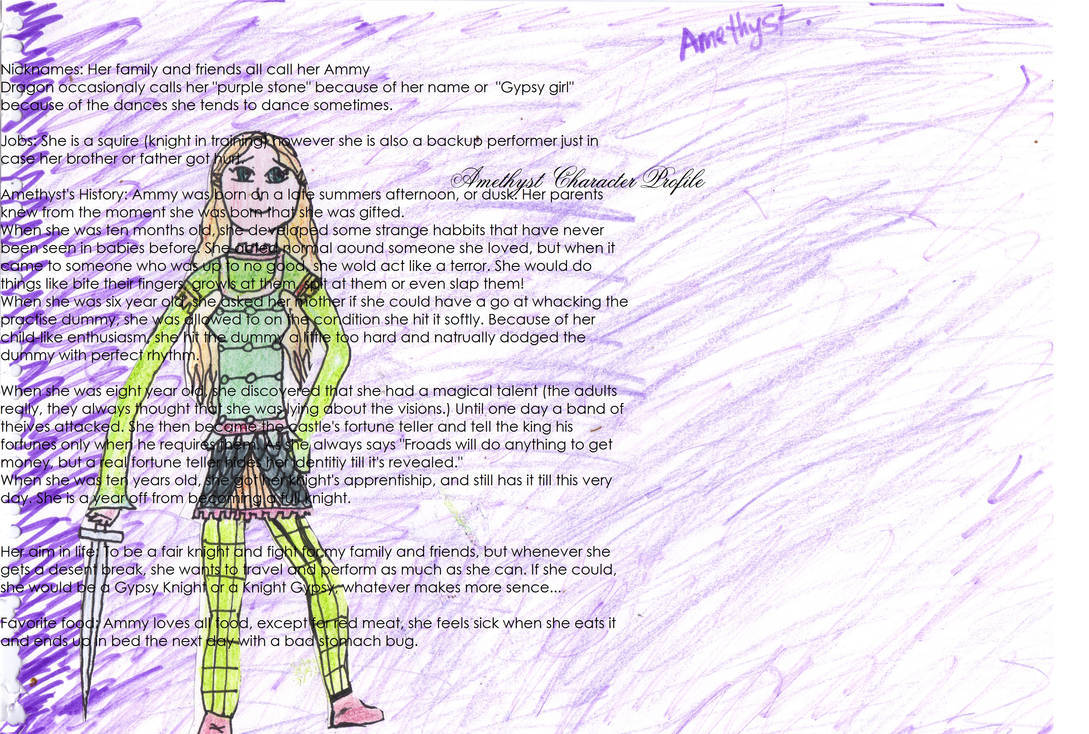 Amethyst.
Nicknames: Her family and friends all call her Ammy
Dragon occasionaly calls her "purple stone" because of her name or "Gypsy girl"
because of the dances she tends to dance sometimes.
Jobs: She is a squire (knight in training) however she is also a backup performer just in
case her brother or father got hurt.
Amethyst Character Profile
Amethyst's History: Ammy was born on a late summers afternoon, or dusk. Her parents
knew from the moment she was born that she was gifted.
When she was ten months old, she developed some strange habbits that have never
been seen in babies before. She acted normal aound someone she loved, but when it
came to someone who was up to no good, she wold act like a terror. She would do
things like bite their fingers, growls at them, spit at them or even slap them!
When she was six year old, she asked her mother if she could have a go at whacking the
practise dummy, she was allowed to on the condition she hit it softly. Because of her
child-like enthusiasm, she hit the dummy a little too hard and natrually dodged the
dummy with perfect rhythm.
When she was eight year old, she discovered that she had a magical talent (the adults
really, they always thought that she was lying about the visions.) Until one day a band of
theives attacked. She then became the castle's fortune teller and tell the king his
fortunes only when he requires them. As she always says "Froads will do anything to get
money, but a real fortune teller hides her identitiy till it's revealed."
When she was ten years old, she got her knight's apprentiship, and still has it till this very
day. She is a year off from becoming a full knight.
Her aim in life: To be a fair knight and fight for my family and friends, but whenever she
gets a desent break, she wants to travel and perform as much as she can. If she could,
she would be a Gypsy Knight or a Knight Gypsy, whatever makes more sence...
Favorite food: Ammy loves all food, except for red meat, she feels sick when she eats it
and ends up in bed the next day with a bad stomach bug.